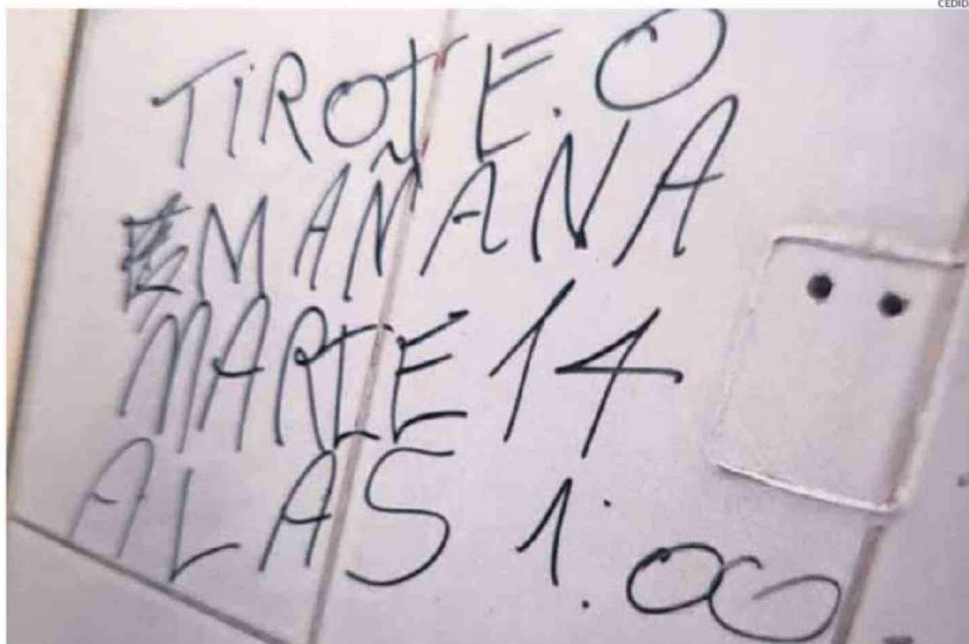 CEDID
TiROTE.O
MAÑANA
MARTE 14
ALAS 1:00